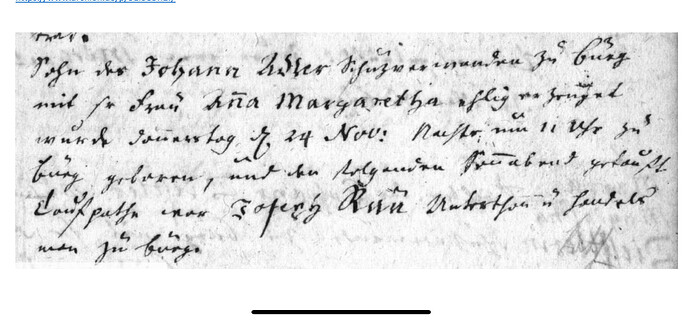 war.
Sohn des Johann Adler Schuzverwanden zu Burg
mit sr Frau Anna Margaretha ehlig erzeuget
wurde donnerstag d. 24 Nov: Nachts um 11 Uhr zu
burg geboren, und den folgenden Sonnabend getauft
taufpathe war Joseph Unterthan u handels
man zu burg.